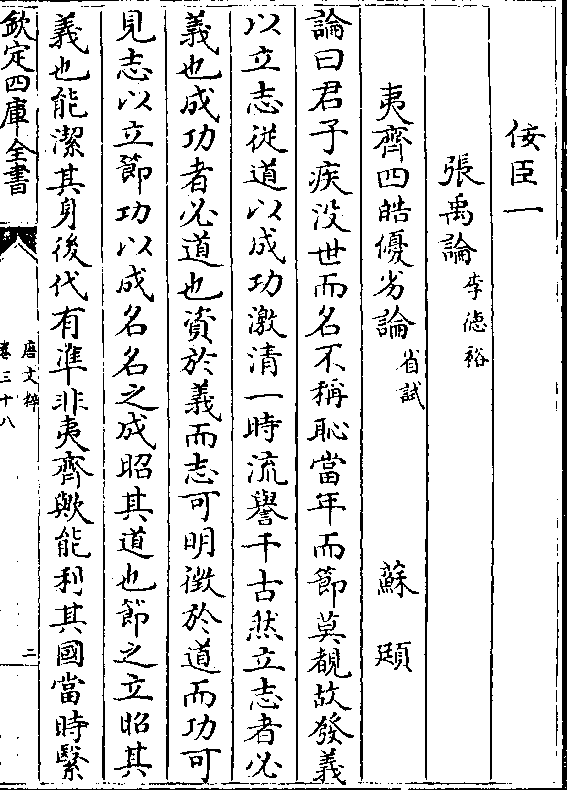 佞臣一
張禹論李徳裕
夷齊四皓優劣論省試 蘇頲
論曰君子疾没世而名不稱恥當年而節莫覩故發義
以立志從道以成功激清一時流譽千古然立志者必
義也成功者必道也資於義而志可明徵於道而功可
見志以立節功以成名名之成昭其道也節之立昭其
義也能潔其身後代有準非夷齊歟能利其國當時繄
欽定四庫全書
唐文粹
卷三十八
二